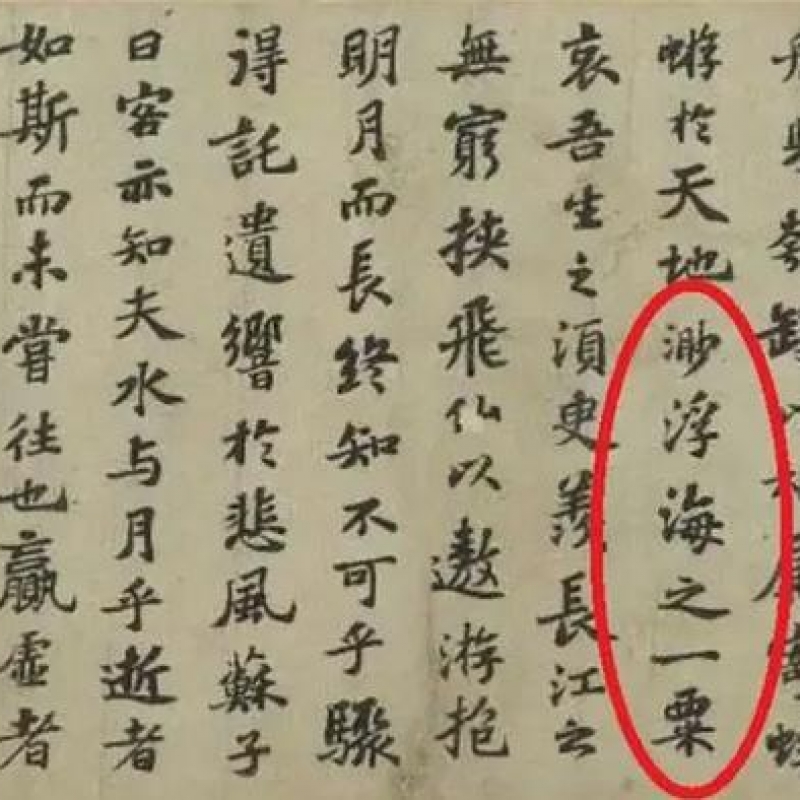 蝣於天地渺浮海之一粟
哀吾生之須臾羨長江之
無窮挾飛仙以遨游抱
明月而長終知不可乎驟
得託遺響於悲風蘇子
曰客亦知夫水与月乎逝者
如斯而未嘗往也贏虛者